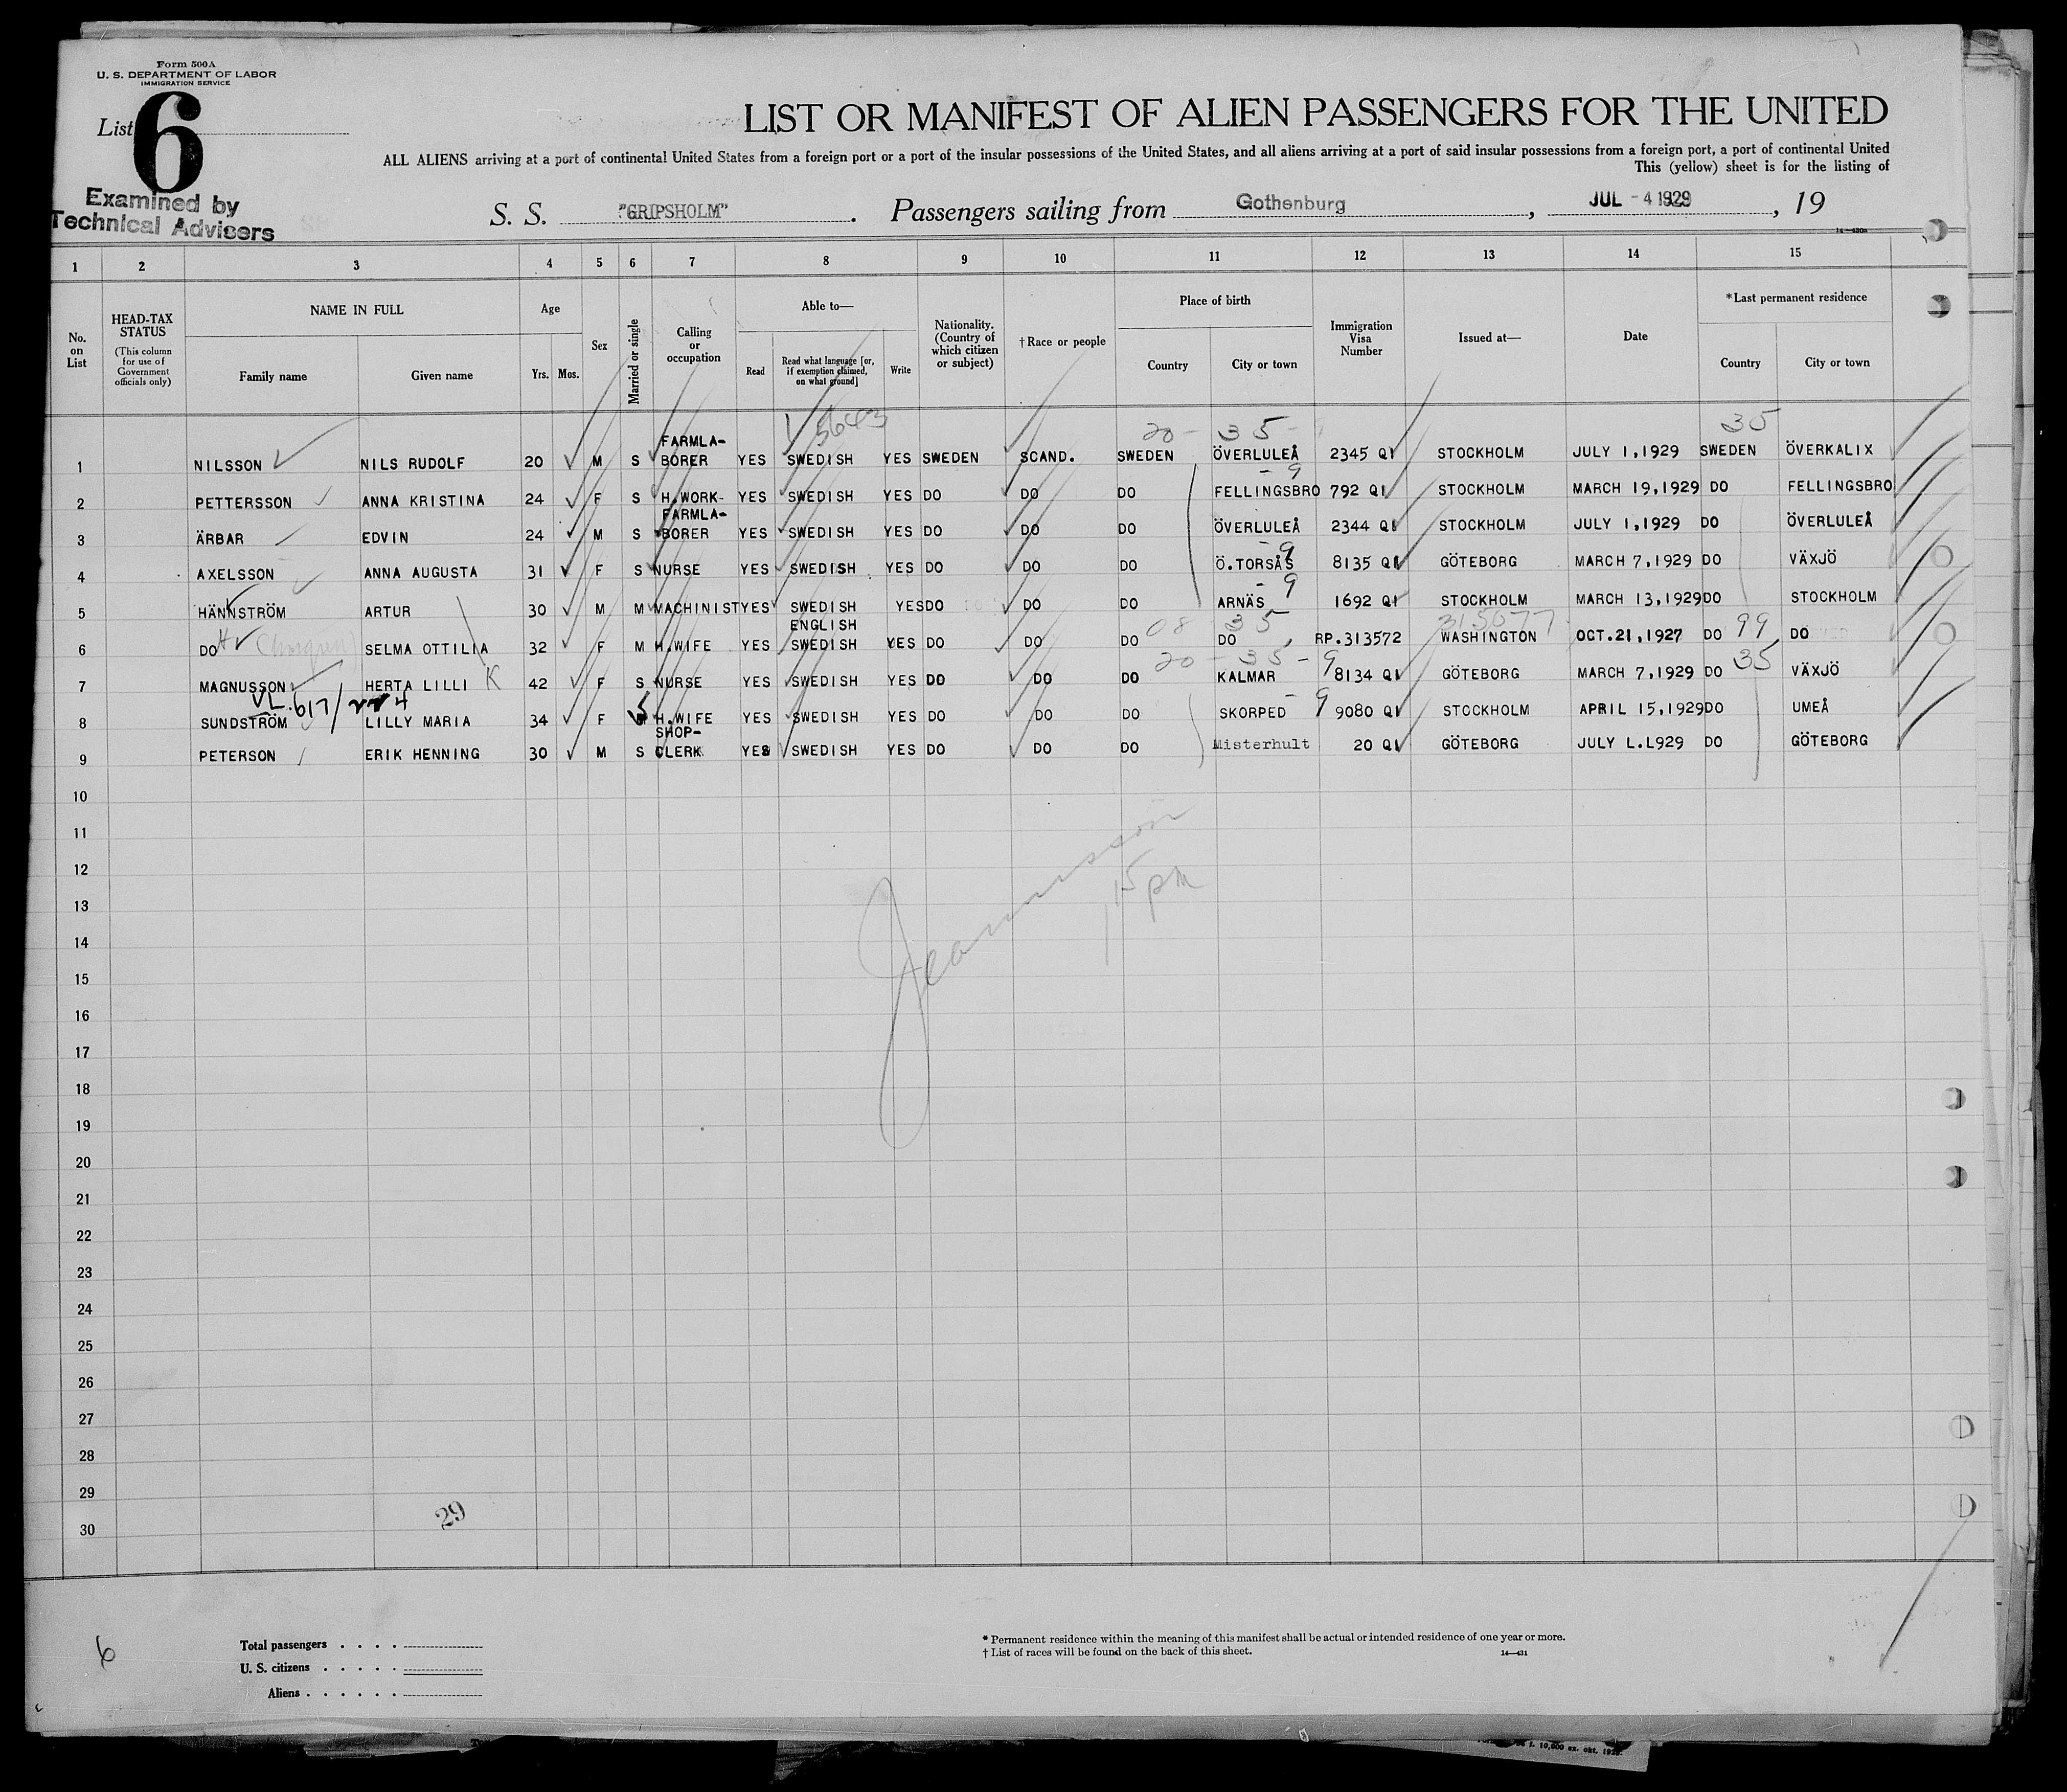 Form 500A
U. S. DEPARTMENT OF LABOR
IMMIGRATION SERVICE
List 6
Examined by
Technical Advisers
LIST OR MANIFEST OF ALIEN PASSENGERS FOR THE UNITED
ALL ALIENS arriving at a port of continental United States from a foreign port or a port of the insular possessions of the United States, and all aliens arriving at a port of said insular possessions from a foreign port, a port of continental United
This (yellow) sheet is for the listing of
S. S. "GRIPSHOLM". Passengers sailing from Gothenburg, JUL - 4 1929, 19
14-430a
1 2 3 4 5 6 7 8 9 10 11 12 13 14 15
No. on List
HEAD-TAX STATUS (This column for use of Government officials only)
NAME IN FULL Family name Given name
Age Yrs. Mos.
Sex
Married or single
Calling or occupation
Able to— Read Read what language [or, if exemption claimed, on what ground] Write
Nationality. (Country of which citizen or subject)
† Race or people
Place of birth Country City or town
Immigration Visa Number
Issued at—
Date
*Last permanent residence Country City or town
5643 20 - 35 - 35
1 NILSSON NILS RUDOLF 20 M S FARMLA-BORER YES SWEDISH YES SWEDEN SCAND. SWEDEN ÖVERLULEÅ 2345 QI STOCKHOLM JULY 1,1929 SWEDEN ÖVERKALIX
- 9
2 PETTERSSON ANNA KRISTINA 24 F S H.WORK- YES SWEDISH YES DO DO DO FELLINGSBRO 792 QI STOCKHOLM MARCH 19,1929 DO FELLINGSBRO
3 ÄRBAR EDVIN 24 M S FARMLA-BORER YES SWEDISH YES DO DO DO ÖVERLULEÅ 2344 QI STOCKHOLM JULY 1,1929 DO ÖVERLULEÅ
- 9
4 AXELSSON ANNA AUGUSTA 31 F S NURSE YES SWEDISH YES DO DO DO Ö.TORSÅS 8135 QI GÖTEBORG MARCH 7,1929 DO VÄXJÖ
- 9
5 HÄNNSTRÖM ARTUR 30 M M MACHINIST YES SWEDISH YES DO DO DO ARNÄS 1692 QI STOCKHOLM MARCH 13,1929 DO STOCKHOLM
08 35 315077 99
6 DO SELMA OTTILIA 32 F M H.WIFE YES ENGLISH SWEDISH YES DO DO DO DO RP.313572 WASHINGTON OCT.21,1927 DO DO
20 - 35 - 9 35
7 MAGNUSSON HERTA LILLI K 42 F S NURSE YES SWEDISH YES DO DO DO KALMAR 8134 QI GÖTEBORG MARCH 7,1929 DO VÄXJÖ
VL.617/
- 9
8 SUNDSTRÖM LILLY MARIA 34 F S H.WIFE YES SWEDISH YES DO DO DO SKORPED 9080 QI STOCKHOLM APRIL 15,1929 DO UMEÅ
9 PETERSON ERIK HENNING 30 M S SHOP-CLERK YES SWEDISH YES DO DO DO Misterhult 20 QI GÖTEBORG JULY L.L929 DO GÖTEBORG
10
11
12
13
14
15
16
17
18
19
20
21
22
23
24
25
26
27
28
29
30
1 15 pm
29
6
Total passengers . . . .
U. S. citizens . . . . .
Aliens . . . . . .
* Permanent residence within the meaning of this manifest shall be actual or intended residence of one year or more.
† List of races will be found on the back of this sheet.
14-431